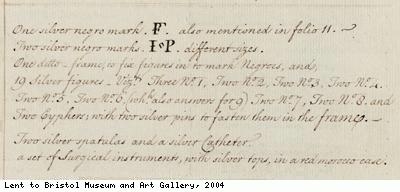 One silver negro mark. F. also mentioned in folio 11. ~
Two silver negro marks. IoP. different sizes.
One ditto – frame, to fix figures in to mark Negroes, and,
19 Silver figures – Vizt. Three No. 1, Two No. 2, Two No. 3, Two No. 4.
Two No. 5, Two No. 6 (wh. also answers for 9) Two No. 7, Two No. 8. and
Two Cyphers; with two silver pins to fasten them in the frame. –
Two silver spatulas and a silver Catheter.
a set of Surgical instruments, with silver tops, in a red morocco case.
Lent to Bristol Museum and Art Gallery, 2004